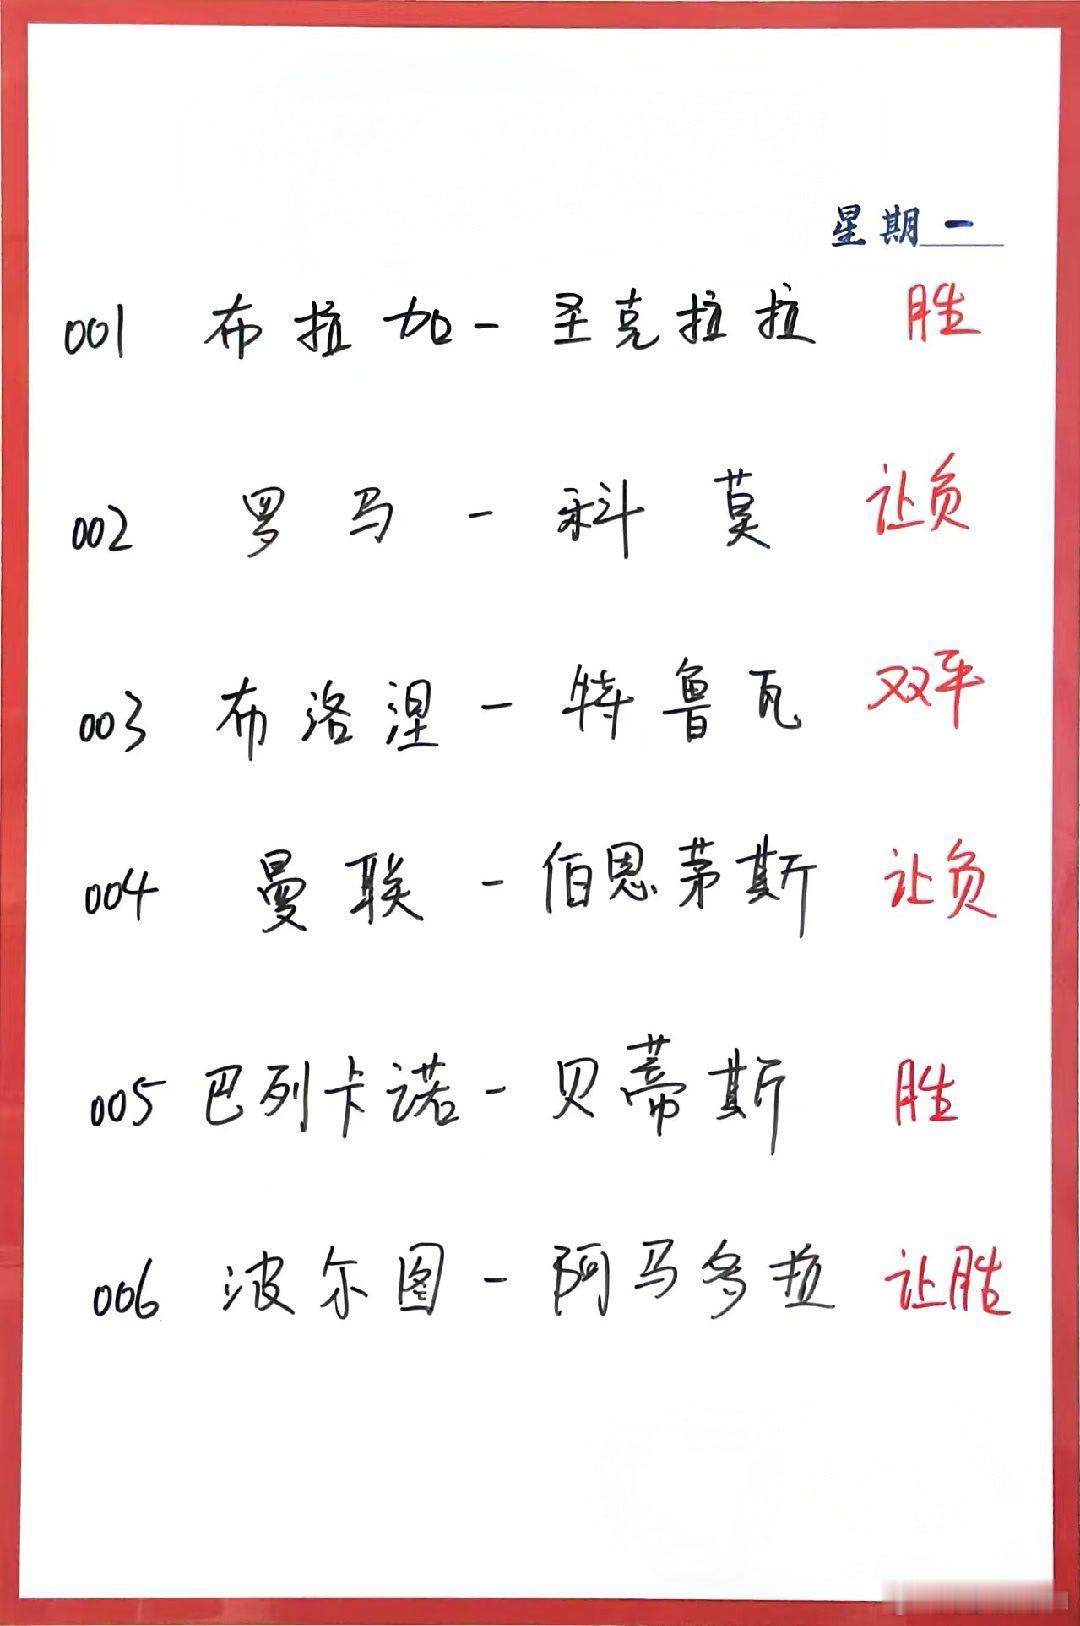 星期一
001 布拉加-圣克拉拉 胜
002 罗马-科莫 让负
003 布洛涅-特鲁瓦 双平
004 曼联-伯恩茅斯 让负
005 巴列卡诺-贝蒂斯 胜
006 波尔图-阿马多拉 让胜